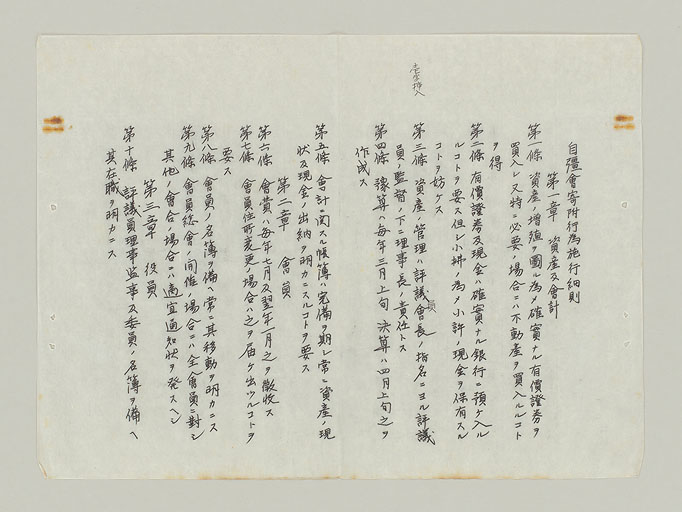 自彊會寄附行為施行細則
第一章 資產及會計
第一條 資產ノ增殖ヲ圖ル為メ確實ナル有價證券ヲ
買入レ又特ニ必要ノ場合ニハ不動產ヲ買入ルルコト
ヲ得
第二條 有價證券及現金ハ確實ナル銀行ニ預ケ入ル
ルコトヲ要ス但シ小拂ノ為メ小許ノ現金ヲ保有スル
コトヲ妨ケス
第三條 資產ノ管理ハ評議會長ノ指名ニヨル評議
員ノ監督ノ下ニ理事長ノ責任トス
第四條 豫算ハ每年三月上旬 決算ハ四月上旬之ヲ
作成ス
第五條 會計ニ関スル帳簿ハ完備ヲ期シ常ニ資產ノ現
狀及現金ノ出納ヲ明カニスルコトヲ要ス
第二章 會員
第六條 會費ハ每年七月及翌年一月之ヲ徵收ス
第七條 會員住所変更ノ場合ハ之ヲ届ケ出ツルコトヲ
要ス
第八條 會員ノ名簿ヲ備ヘ常ニ其移動ヲ明カニス
第九條 會員総會ノ開催ノ場合ニハ全會員ニ對シ
其他ノ會合ノ場合ニハ適宜通知狀ヲ發スヘシ
第三章 役員
第十條 評議員理事監事及委員ノ名簿ヲ備ヘ
其在職ヲ明カニス